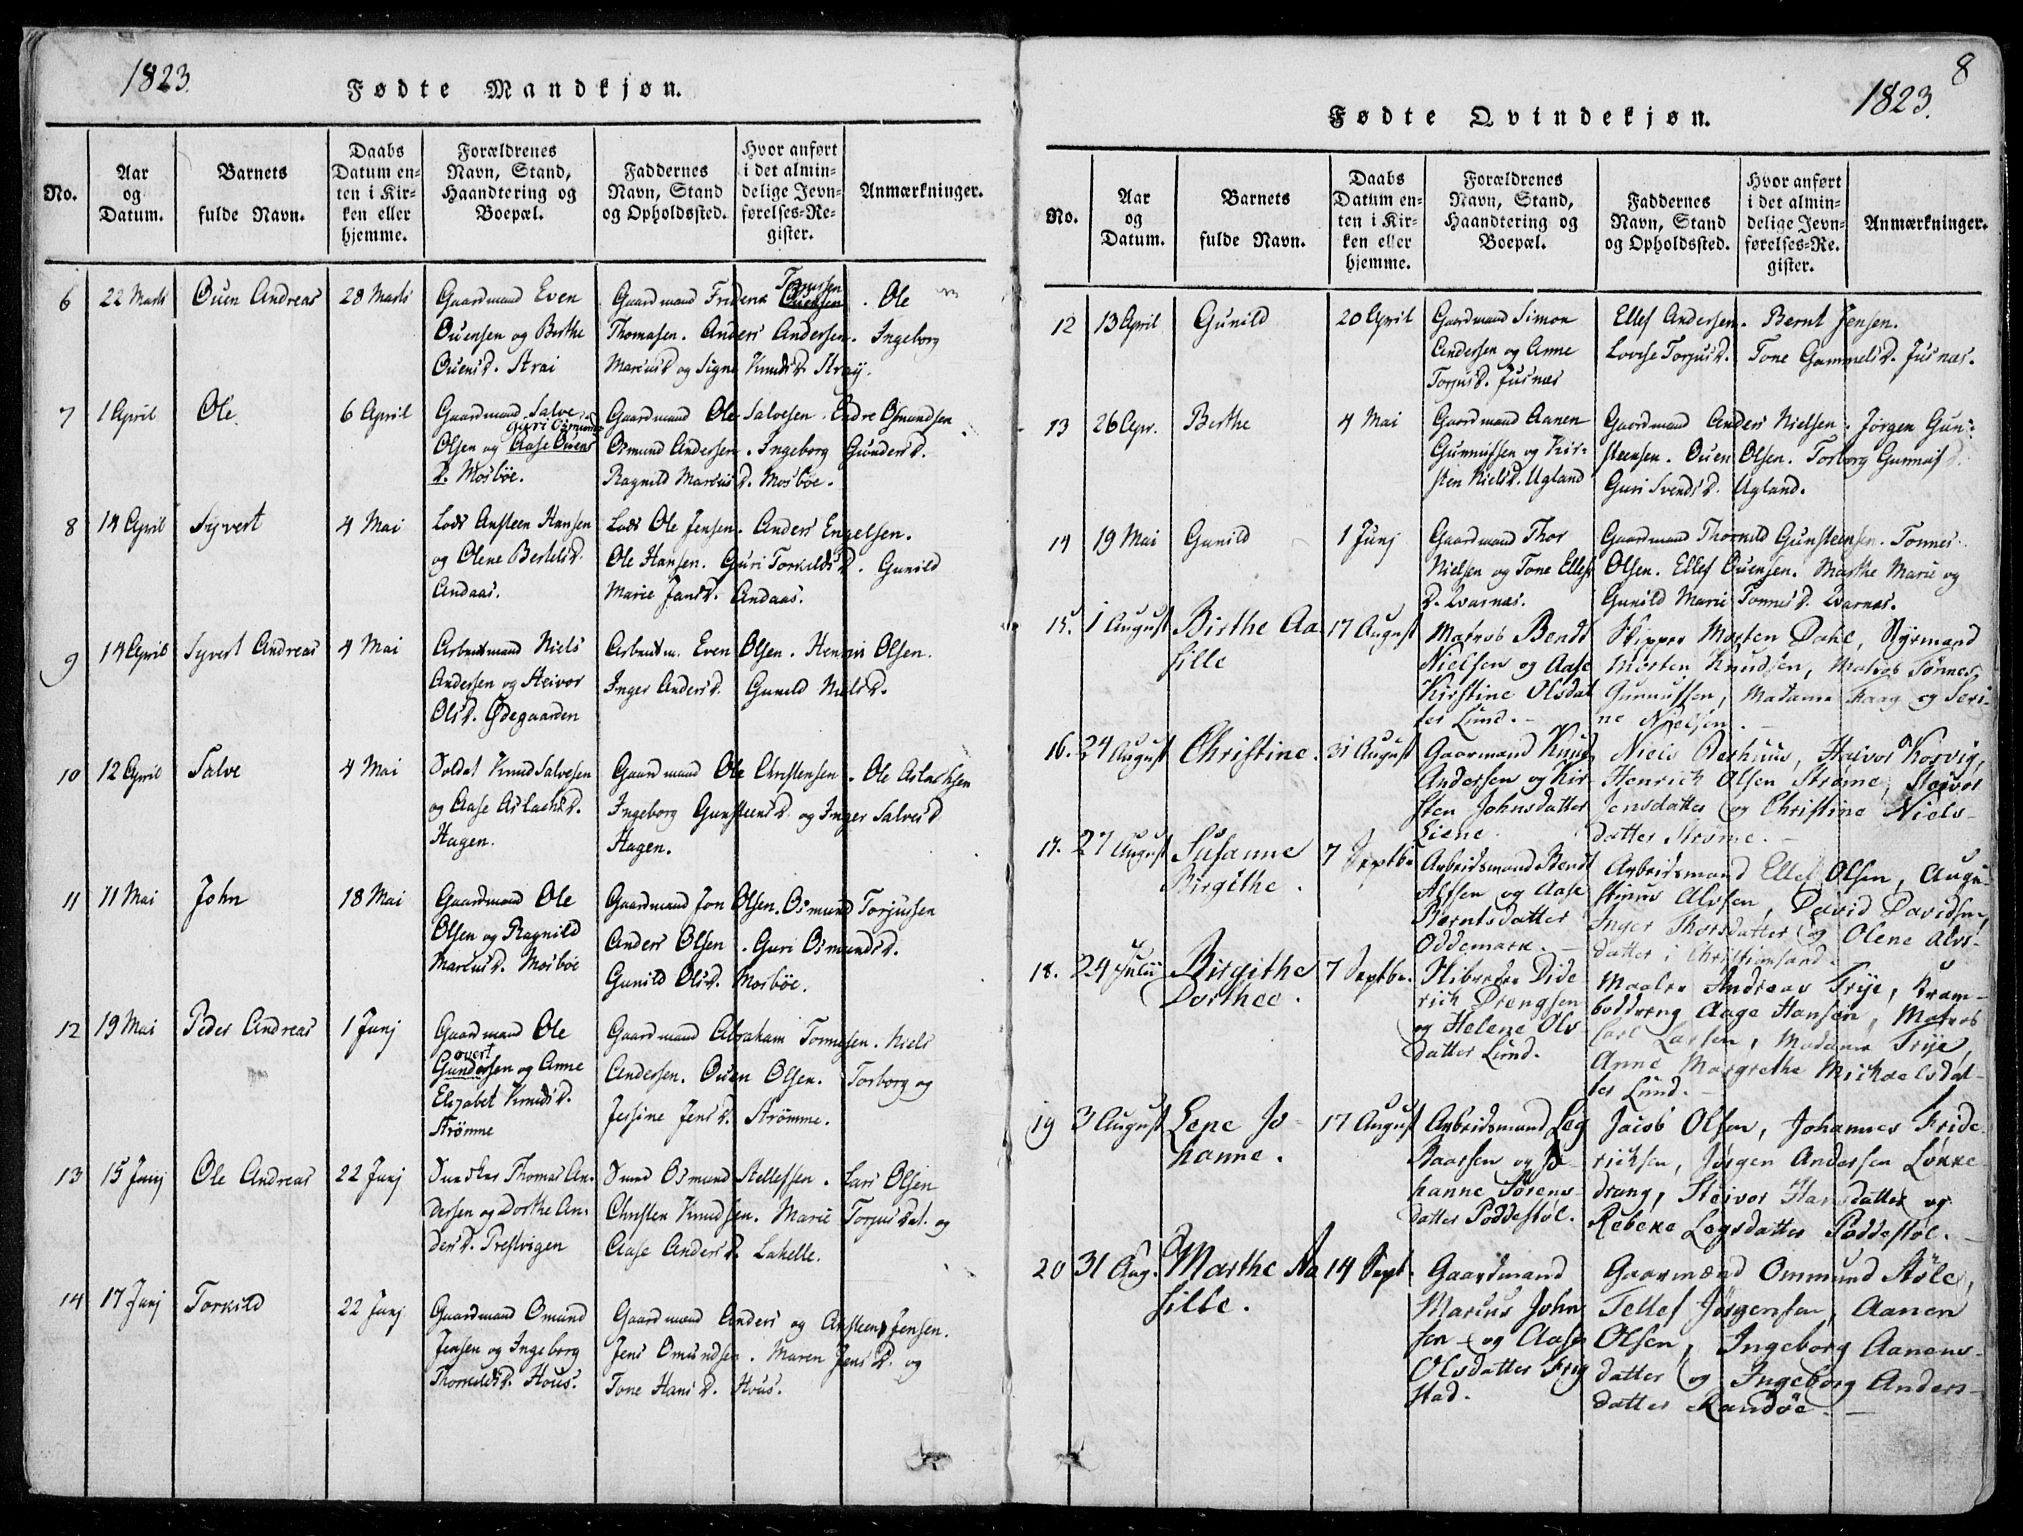 1823.
Fødte Mandkjøn.
No.
Aar
og
Datum.
Barnets
fulde Navn.
Daabs
Datum en-
ten i Kir-
ken eller
hjemme.
Forældrenes
Navn, Stand,
Haandtering og
Boepæl.
Faddernes
Navn, Stand
og Opholdssted.
Hvor anført
i det almin-
delige Jevn-
førelses-Re-
gister.
Anmærkninger.
6 22 Marts Ouen Andreas 28 Marts
Gaardmand Even
Ouensen og Berthe
Ouens D. Strai
Gaardmand Ole
Thomasen. Anders Andersen. Ingeborg
Marcus D og Signe Knuds D. Stray.
7 1 April Ole 6 April
Gaardmand Salve
Guri Osmunds
Olsen og Aase Ouens
D. Mosbøe.
Gaardmand Ole Salvesen. Endre Osmundsen
Osmund Andersen. Ingeborg Gunders D.
Ragnild Marcus D. Mosbøe.
8 14 April Syvert 4 Mai
Lods Ansteen Hansen
og Olene Bertels D.
Andaas.
Lods Ole Jensen. Anders Engelsen.
Ole Hansen. Guri Torkilds D. Gunild
Marie Jans D. Andaas.
9 14 April Syvert Andreas 4 Mai
Arbeidsmand Niels
Andersen og Steivor
Ols D. Ødegaarden
Arbeidsm. Even Olsen. Henrik Olsen.
Inger Anders D. Gunild Niels D.
10 12 April Salve 4 Mai
Soldat Knud Salvesen
og Aase Aslachs D.
Hagen.
Gaardmand Ole Christensen. Ole Aslachsen
Ingeborg Gunsteens D. og Inger Salves D
Hagen.
11 11 Mai John 18 Mai
Gaardmand Ole
Olsen og Ragnild
Marcus D. Mosbøe
Gaardmand Jon Olsen. Osmund Torjussen
Anders Olsen. Guri Osmunds D.
Gunild Ols D. Mosbøe.
12 19 Mai Peder Andreas 1 Junj
Gaardmand Ole
Gundersen og Anne
Elizabet Knuds D.
Strømme
Gaardmand Abraham Tonnesen. Niels
Andersen. Ouen Olsen. Torborg og
Jessine Jens D. Strømme.
13 15 Junj Ole Andreas 22 Junj
Thomas An-
dersen og Dorthe An-
ders D. Prestvigen
Osmund Stellefsen. Lars Olsen
Christen Knudsen. Marie Torjus Dat. og
Aase Anders D. Lahelle.
14 17 Junj Torkild 22 Junj
Gaardmand Omund
Jensen og Ingeborg
Thorkilds D. Hous.
Gaardmand Anders og Ansteen Jensen.
Jens Omundsen. Maren Jens D. og
Tone Hans D. Hous.
8
1823.
Fødte Qvindekjøn.
No.
Aar
og
Datum.
Barnets
fulde Navn.
Daabs
Datum en-
ten i Kir-
ken eller
hjemme.
Forældrenes
Navn, Stand,
Haandtering og
Boepæl.
Faddernes
Navn, Stand
og Opholdssted.
Hvor anført
i det almin-
delige Jevn-
førelses-Re-
gister.
Anmærkninger.
12 13 April Gunild 20 April
Gaardmand Simon
Andersen og Anne
Torjus D. Jusnæs
Ellef Andersen. Bernt Jensen.
Lovise Torjus D. Tone Gammels D. Jusnæs.
13 26 Apr. Berthe 4 Mai
Gaardmand Aanen
Gunnufsen og Kir-
sten Niels D. Ugland
Gaardmand Anders Nielsen. Jørgen Gun-
steensen. Ouen Olsen. Torborg Gunnufs D.
Guri Svends D. Ugland.
14 19 Mai Gunild 1 Junj
Gaardmand Thor
Nielsen og Tone Ellefs
D. Qvarnæs.
Gaardmand Thorkild Gunsteensen. Tonnes
Olsen. Ellef Ouensen. Marthe Marie og
Gunild Marie Tonnes D. Qvarnæs.
15. 1 August Birthe Aa- 17 August
sille
Matros Bendt
Nielsen og Aase
Kirstine Olsdat
ter Lund.
Skipper Morten Dahl, Styrmand
Morten Knudsen, Matros Tønnes
Gunnufsen, Madame Haag og Seri-
ne Nielsen.
16. 24 August Christine. 31 August
Gaarmand Knud
Andersen og Kir-
sten Johnsdatter
Liene.
Niels Østhuus, Halvor Korsvig,
Henrich Olsen Strøme, Steivor
Jensdatter og Christine Niels-
datter Strøme.
17. 27 August Susanne 7 Septbr
Birgithe.
Arbeidsmand Bendt
Alfsen og Aase
Berntsdatter
Oddemark.
Arbeidsmand Ellef Olsen, Augu-
stinus Alvsen, David Davidsen,
Inger Thorsdatter og Olene Alvs-
datter i Christiansand.
18. 24 Julii Birgithe 7 Septbr.
Dorthee.
Skibreder Dide
rich Drengsen
og Helene Ols
datter Lund.
Maaler Andreas Frije, Kram-
boddreng Aage Hansen, Matros
Carl Larsen, Madame Frije
Anne Margrethe Michaelsdat-
ter Lund.
19 3 August Lene Jo- 17 August
hanne.
Arbeidsmand Leg
Baarsen og Jo-
hanne Sørens-
datter Poddestøl.
Jacob Olsen, Johannes Fride-
richsen, Jørgen Andersen Løkke-
drang, Steivor Hansdatter og
Rebekke Legsdatter Poddestøl.
20 31 Aug. Marthe Aa 14 Septr.
sille.
Gaardmand
Marius John
sen og Aase
Olsdatter Frig
stad.
Gaarmænd Ommund Støle,
Tellef Jørgensen, Aanen
Olsen, Ingeborg Aanens-
datter og Ingeborg Anders-
datter Randøe.